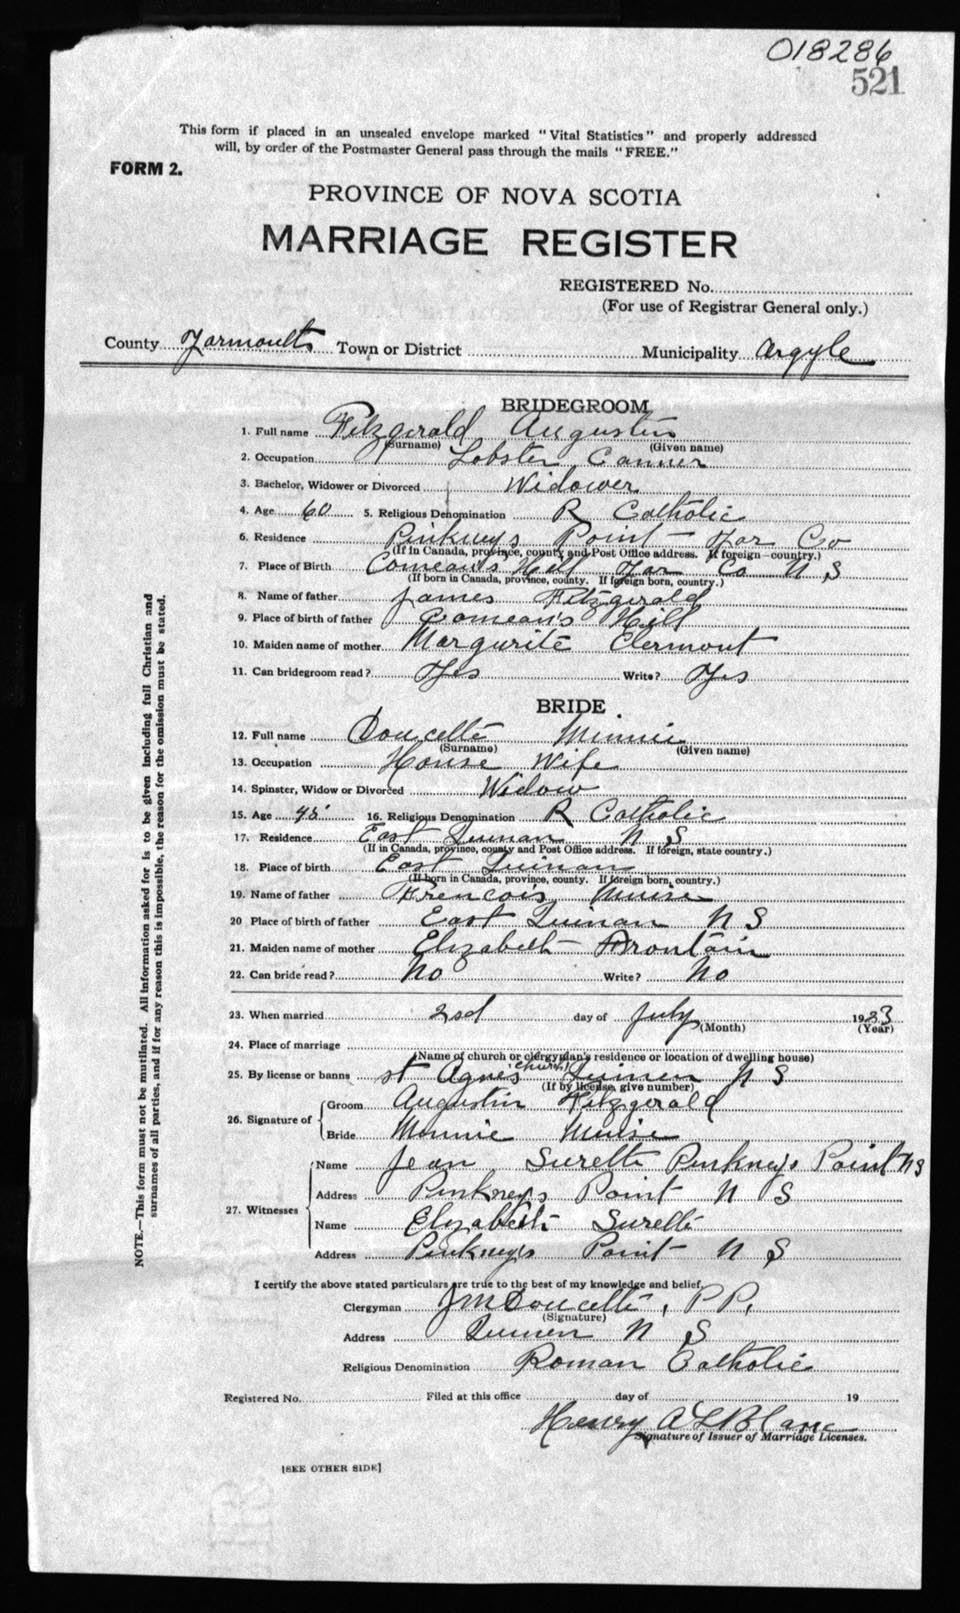 018286
521
This form if placed in an unsealed envelope marked "Vital Statistics" and properly addressed
will, by order of the Postmaster General pass through the mails "FREE."
FORM 2.
PROVINCE OF NOVA SCOTIA
MARRIAGE REGISTER
REGISTERED No.
(For use of Registrar General only.)
County Yarmouth Town or District Municipality Argyle
BRIDEGROOM
1. Full name Fitzgerald Augustin
(Surname) (Given name)
2. Occupation Lobster Canner
3. Bachelor, Widower or Divorced Widower
4. Age 60 5. Religious Denomination R Catholic
6. Residence Pinkney's Point Yar Co
(If in Canada, province, county and Post Office address. If foreign—country.)
7. Place of Birth Comeau's Hill Yar Co N S
(If born in Canada, province, county. If foreign born, country.)
8. Name of father James Fitzgerald
9. Place of birth of father Comeau's Hill
10. Maiden name of mother Margurite Clermont
11. Can bridegroom read? Yes Write? Yes
BRIDE
12. Full name Doucette Minnie
(Surname) (Given name)
13. Occupation House Wife
14. Spinster, Widow or Divorced Widow
15. Age 45 16. Religious Denomination R Catholic
17. Residence East Quinan N S
(If in Canada, province, county and Post Office address. If foreign, state country.)
18. Place of birth East Quinan
(If born in Canada, province, county. If foreign born, country.)
19. Name of father Frencois Muise
20 Place of birth of father East Quinan N S
21. Maiden name of mother Elizabeth Frontain
22. Can bride read? No Write? No
23. When married 2nd day of July 1923
(Month) (Year)
24. Place of marriage
(Name of church or clergyman's residence or location of dwelling house)
25. By license or banns St Agnes church Quinen N S
(If by license, give number)
26. Signature of Groom Augustin Fitzgerald
Bride Minnie Muise
27. Witnesses Name Jean Surette Pinkney's Point N S
Address Pinkneys Point N S
Name Elizabeth Surette
Address Pinkney's Point N S
I certify the above stated particulars are true to the best of my knowledge and belief.
Clergyman J M Doucette, P.P.
(Signature)
Address Quinen N S
Religious Denomination Roman Catholic
Registered No. Filed at this office day of 19
Henry A LeBlanc
Signature of Issuer of Marriage Licenses.
[SEE OTHER SIDE]
NOTE.—This form must not be mutilated. All information asked for is to be given including full Christian and
surnames of all parties, and if for any reason this is impossible, the reason for the omission must be stated.